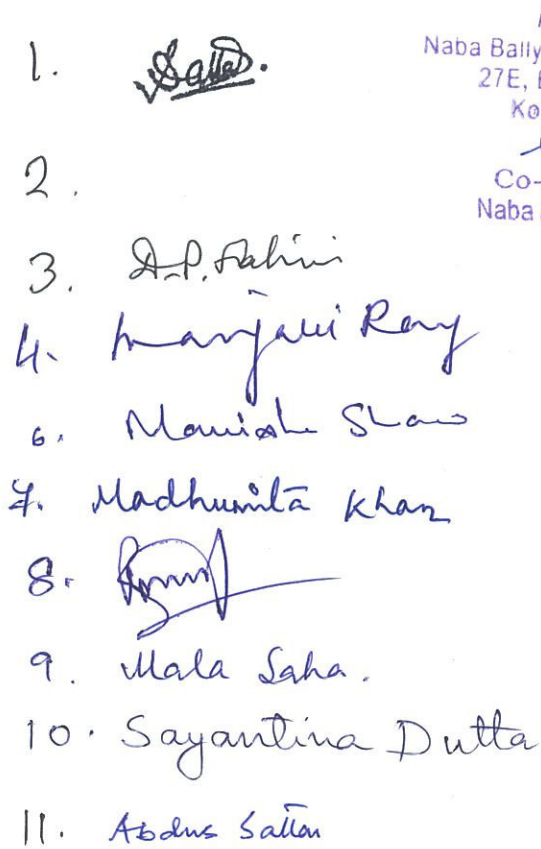 1.
Naba Bally
27E,
Ko
2.
Co-
Naba
3. A.P.
4. Manjari Ray
6. Manish Shaw
7. Madhumita Khan
8.
9. Mala Saha.
10. Sayantina Dutta
11. Abdus Sattar